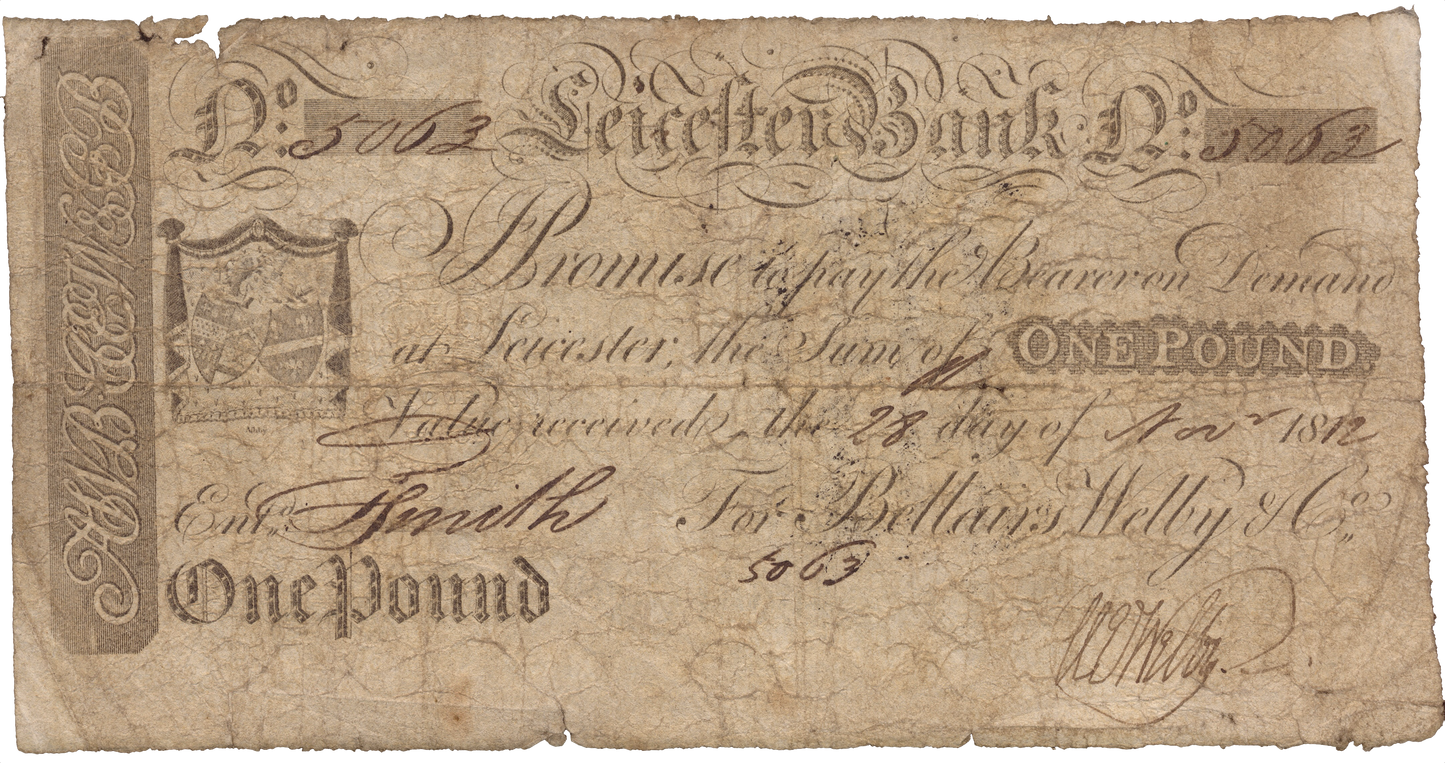 No. 5063 Leicester Bank No. 5063
I Promise to pay the Bearer on Demand
at Leicester, the Sum of ONE POUND
Value received, the 28 day of Novr 1812
Entd. For Bellairs Welby & Co.
5063
One Pound
Welby